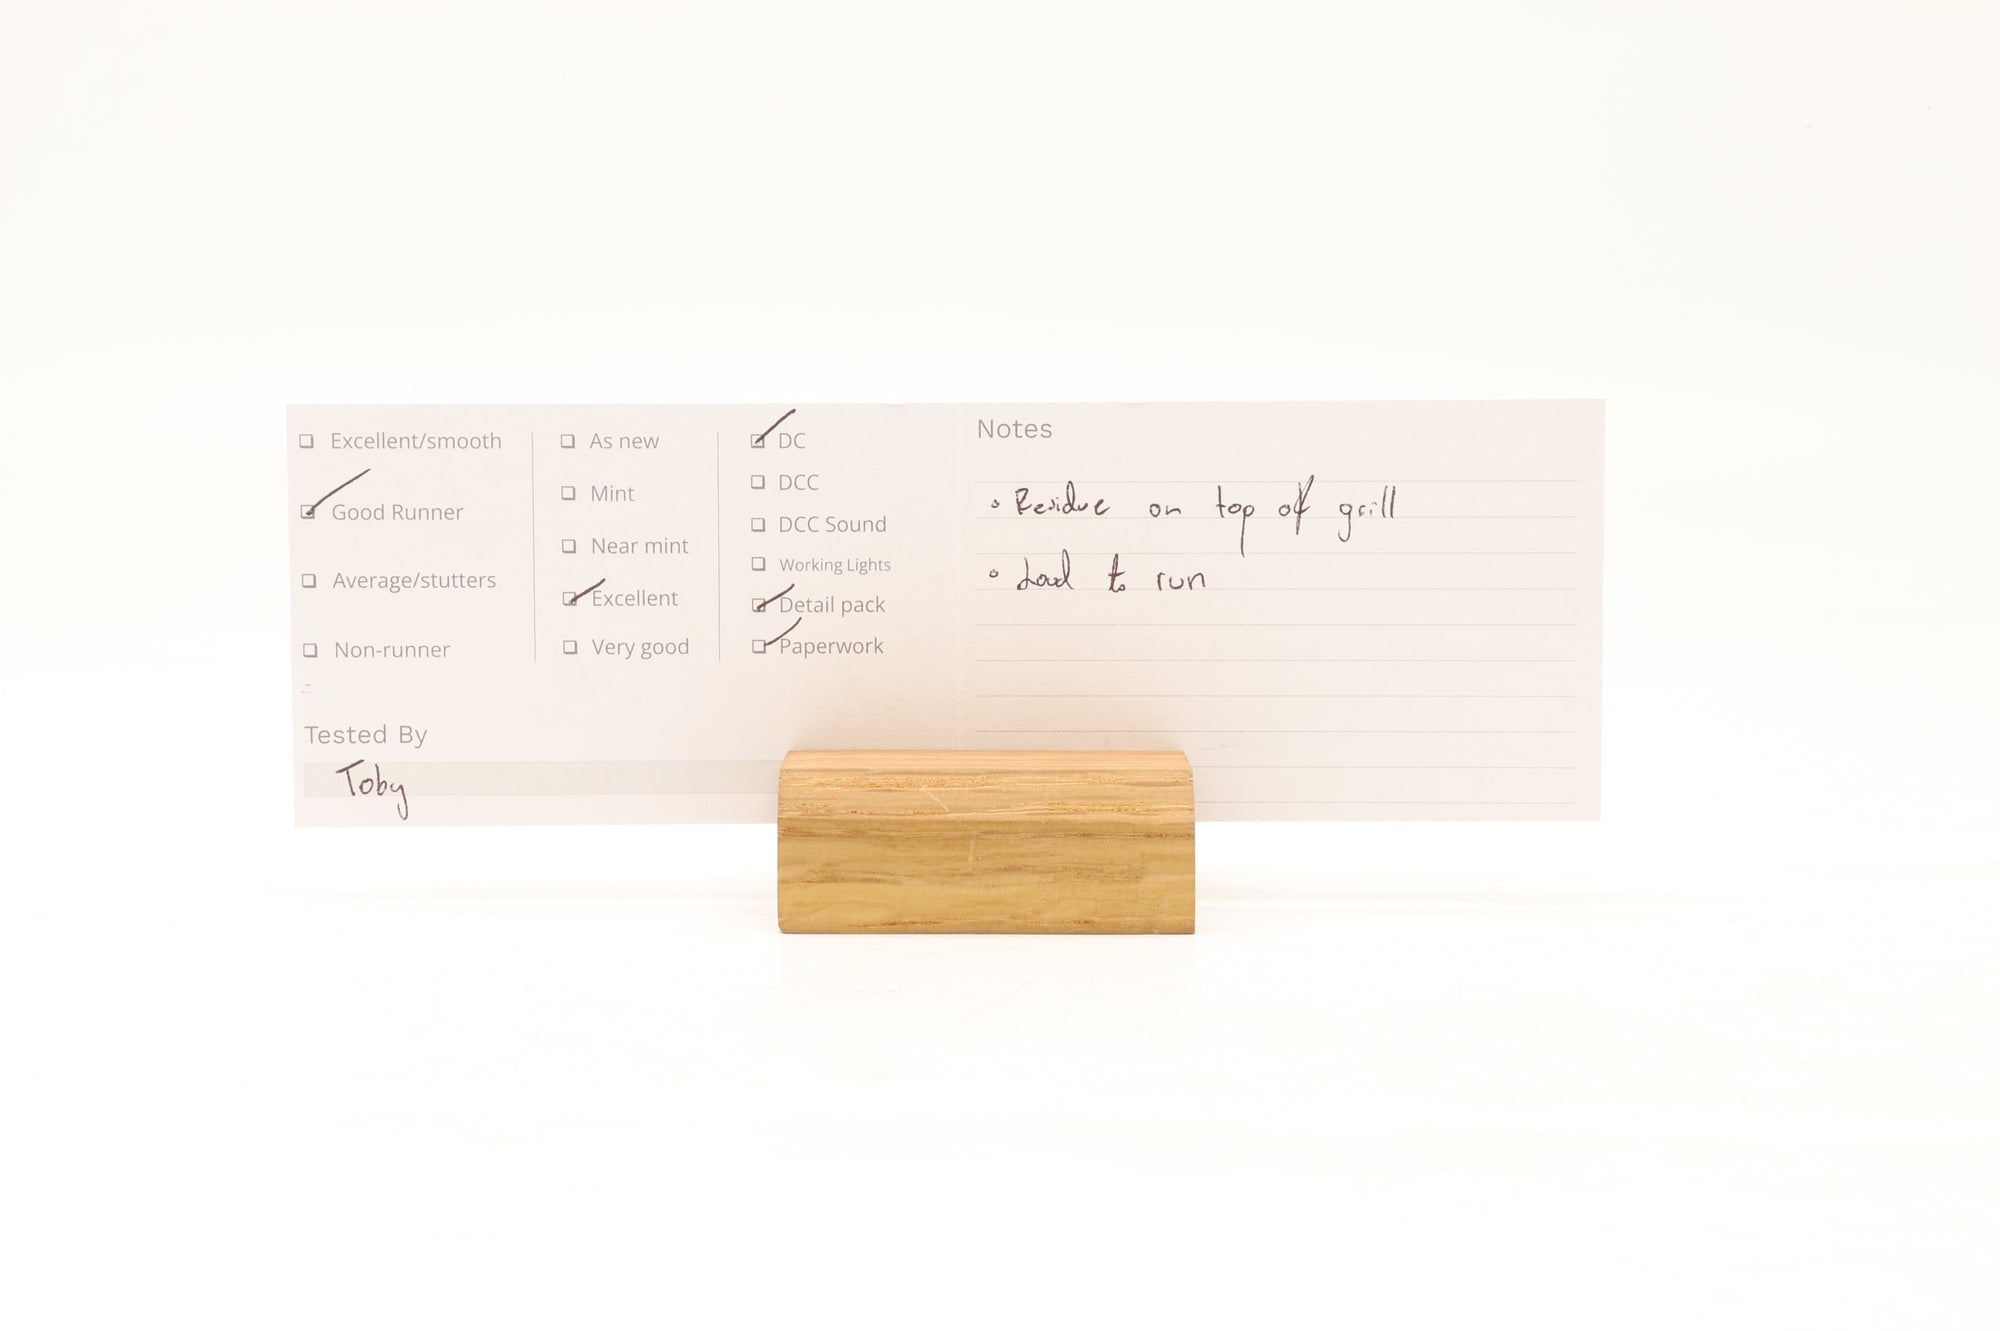 Excellent/smooth
Good Runner
Average/stutters
Non-runner
As new
Mint
Near mint
Excellent
Very good
DC
DCC
DCC Sound
Working Lights
Detail pack
Paperwork
Tested By
Toby
Notes
• Residue on top of grill
• Loud to run